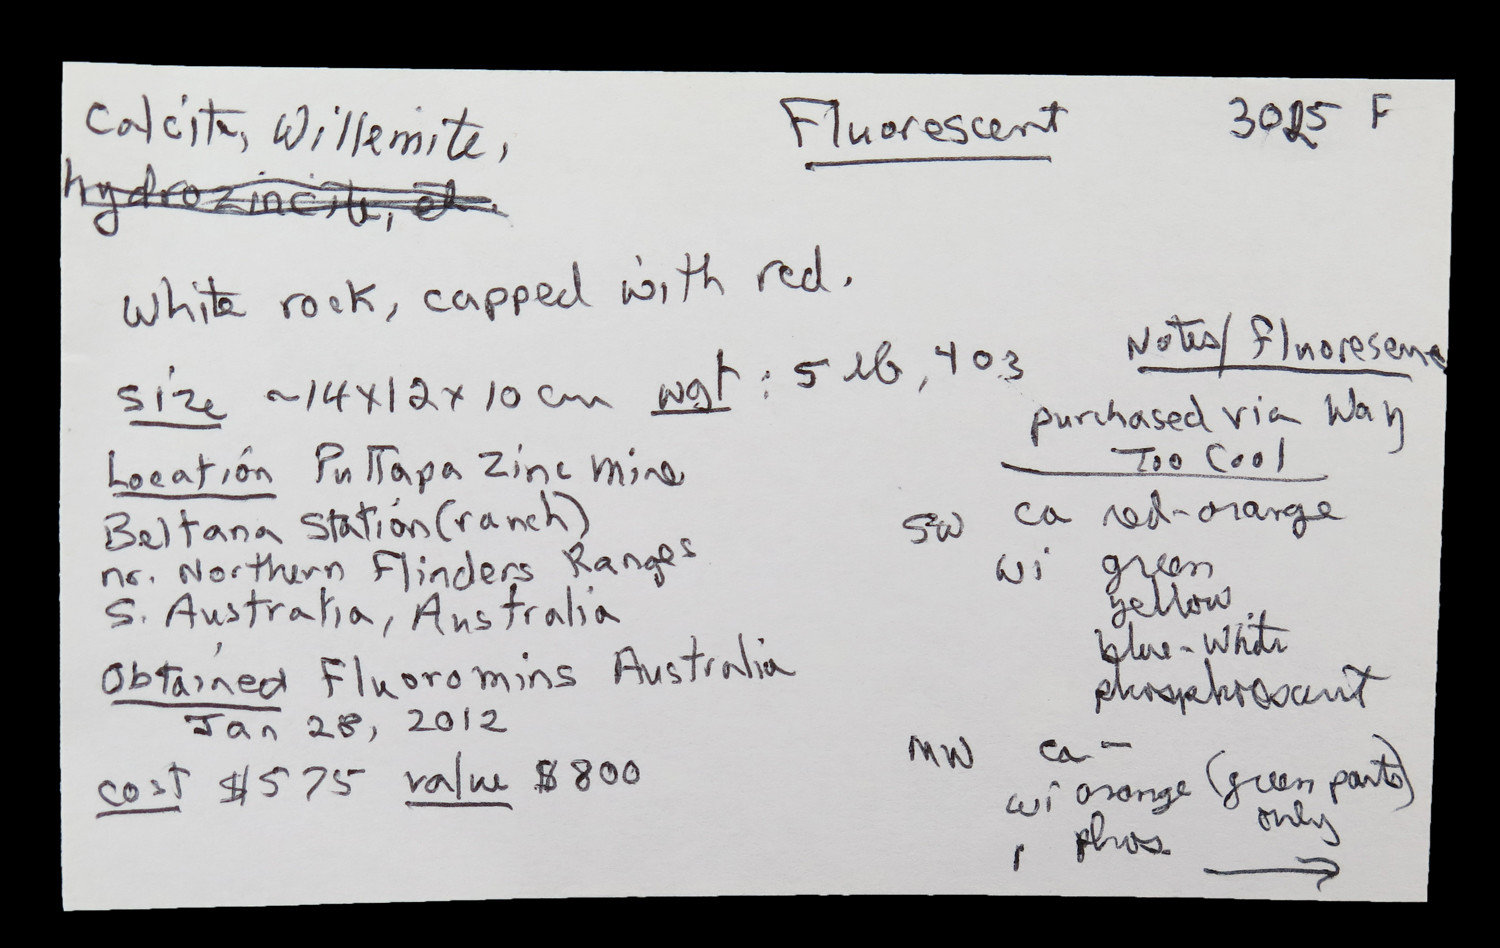 Calcite, Willemite,
hydrozincite,
Fluorescent
3025 F
White rock, capped with red.
size ~14x12x10 cm wgt: 5 lb, 4 oz
Location Puttapa Zinc Mine
Beltana Station (ranch)
nr. Northern Flinders Ranges
S. Australia, Australia
Obtained Fluoromins Australia
Jan 28, 2012
cost $575 value $800
Notes/Fluorescence
purchased via Way
Too Cool
SW ca red-orange
wi green
yellow
blue-white
phosphorescent
MW ca -
wi orange (green parts)
only
phos
→